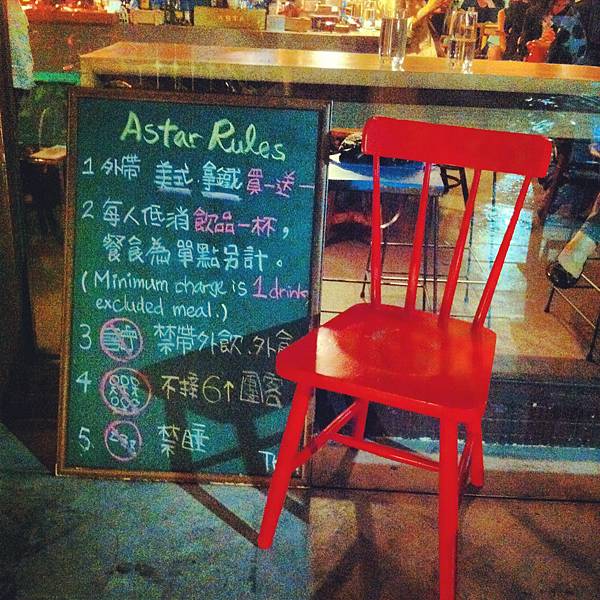 Astar Rules
1 外帶 美式 拿鐵 買一送一
2 每人低消飲品一杯，
餐食為單點另計。
(Minimum charge is 1 drink
excluded meal.)
3 禁帶外飲、外食
4 不接6↑團客
5. 禁睡